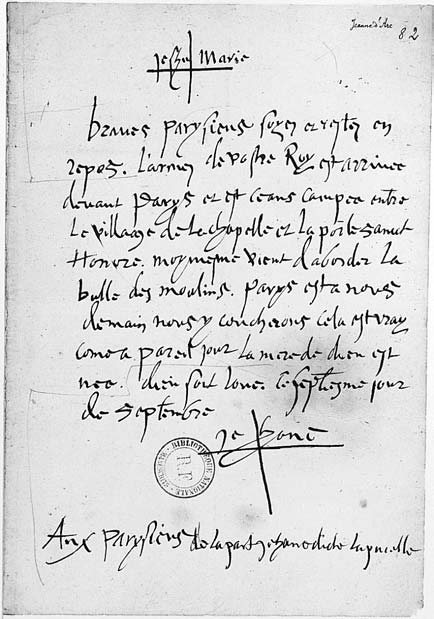 Jeanne d'Arc
82
Jeshus Marie
braves parysiens soyez et restez en
repos. l'armee de vostre Roy est arrivee
devant Parys et est ceans campee entre
Le village de Lachapelle et La porte sainct
Honore. moymesme vient d'aborder La
butte des moulins. Parys est a nous
demain nous y coucherons cela est vray
come a pareil jour La mere de dieu est
nee. dieu soit loue. Ce septiesme jour
de Septembre
BIBLIOTHEQUE NATIONALE
R.F.
Aux Parysiens de la part Jehane dicte la pucelle